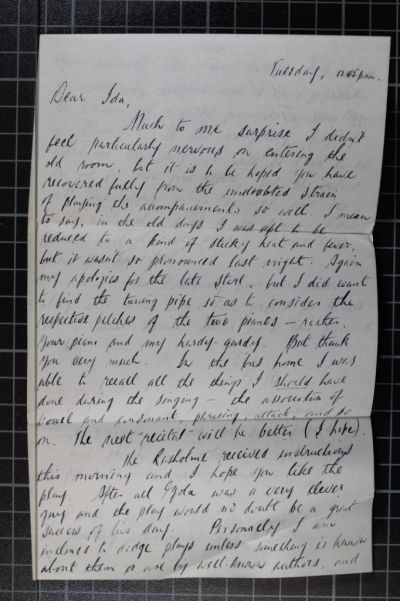 Tuesday, 12.45 p.m.
Dear Ida,
Much to me surprise I didn't
feel particularly nervous on entering the
old room, but it is to be hoped you have
recovered fully from the undoubted strain
of playing the accompaniments so well. I mean
to say, in the old days I was apt to be
reduced to a kind of sticky heat and fever,
but it wasn't so pronounced last night. Again
my apologies for the late start, but I did want
to find the tuning pipe so as to consider the
respective pitches of the two pianos — rather,
your piano and my hurdy-gurdy. But thank
you very much. In the bus home I was
able to recall all the things I should have
done during the singing — the association of
vowel and consonant, phrasing, attack, and so
on. The next recital will be better (I hope).
The Rusholme received instructions
this morning and I hope you like the
play. After all was a very clever
guy and the play would no doubt be a great
success of his day. Personally I am
inclined to dodge plays unless something is known
about them or are by well-known authors, and